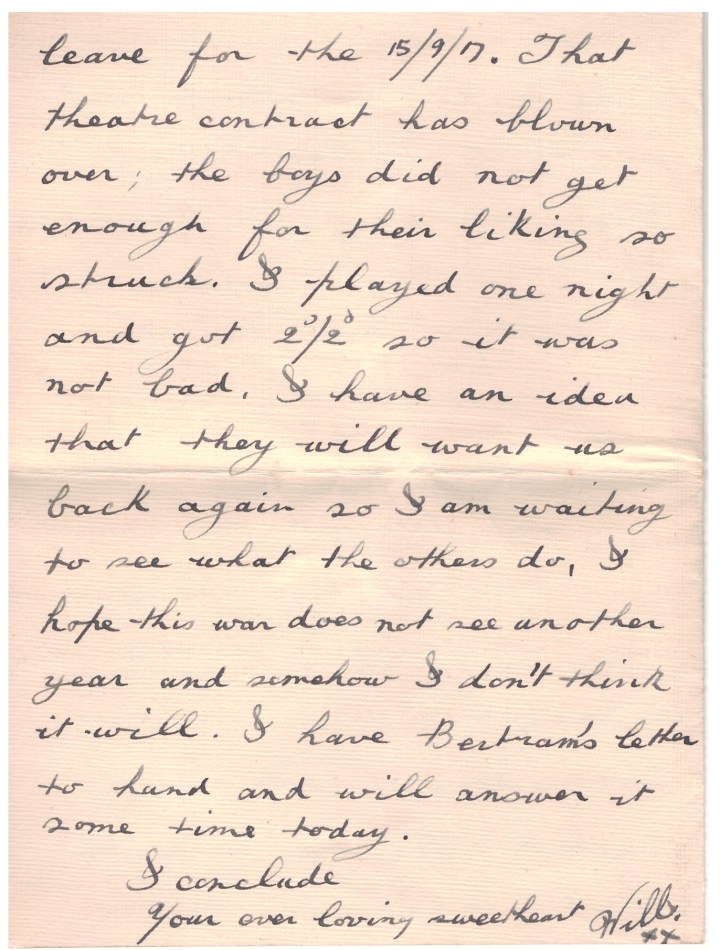 leave for the 15/9/17. That
theatre contract has blown
over; the boys did not get
enough for their liking so
struck. I played one night
and got so it was
not bad. I have an idea
that they will want us
back again so I am waiting
to see what the others do, I
hope this war does not see another
year and somehow I don't think
it will. I have Bertram's letter
to hand and will answer it
some time today.
I conclude
Your ever loving sweetheart Will.
xx